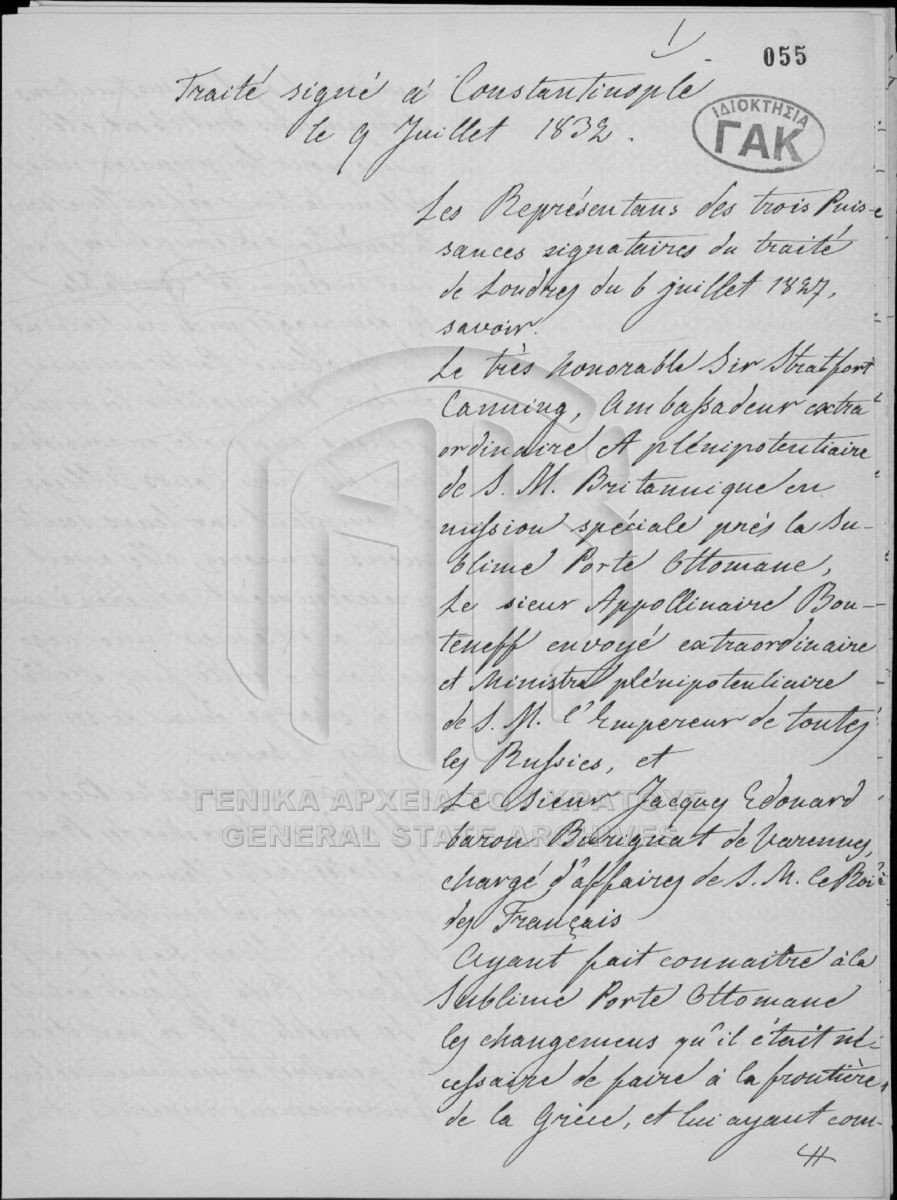 1
055
Traité signé à Constantinople
le 9 Juillet 1832.
ΙΔΙΟΚΤΗΣΙΑ
ΓΑΚ
Les Représentans des trois Puis-
sances signataires du traité
de Londres du 6 juillet 1827,
savoir.
Le très honorable Sir Stratfort
Canning, Ambassadeur extra
ordinaire et plénipotentiaire
de S. M. Britannique en
mission spéciale près la Su-
blime Porte Ottomane,
Le sieur Appollinaire Bou-
teneff envoyé extraordinaire
et Ministre plénipotentiaire
de S. M. l'Empereur de toutes
les Russies, et
Le Sieur Jacques Edouard
baron Burignat de Varennes,
chargé d'affaires de S. M. le Roi
des Français
Ayant fait connaitre à la
Sublime Porte Ottomane
les changemens qu'il était né-
cessaire de faire à la frontière
de la Grèce, et lui ayant com-
ΓΕΝΙΚΑ ΑΡΧΕΙΑ ΤΟΥ ΚΡΑΤΟΥΣ
GENERAL STATE ARCHIVES